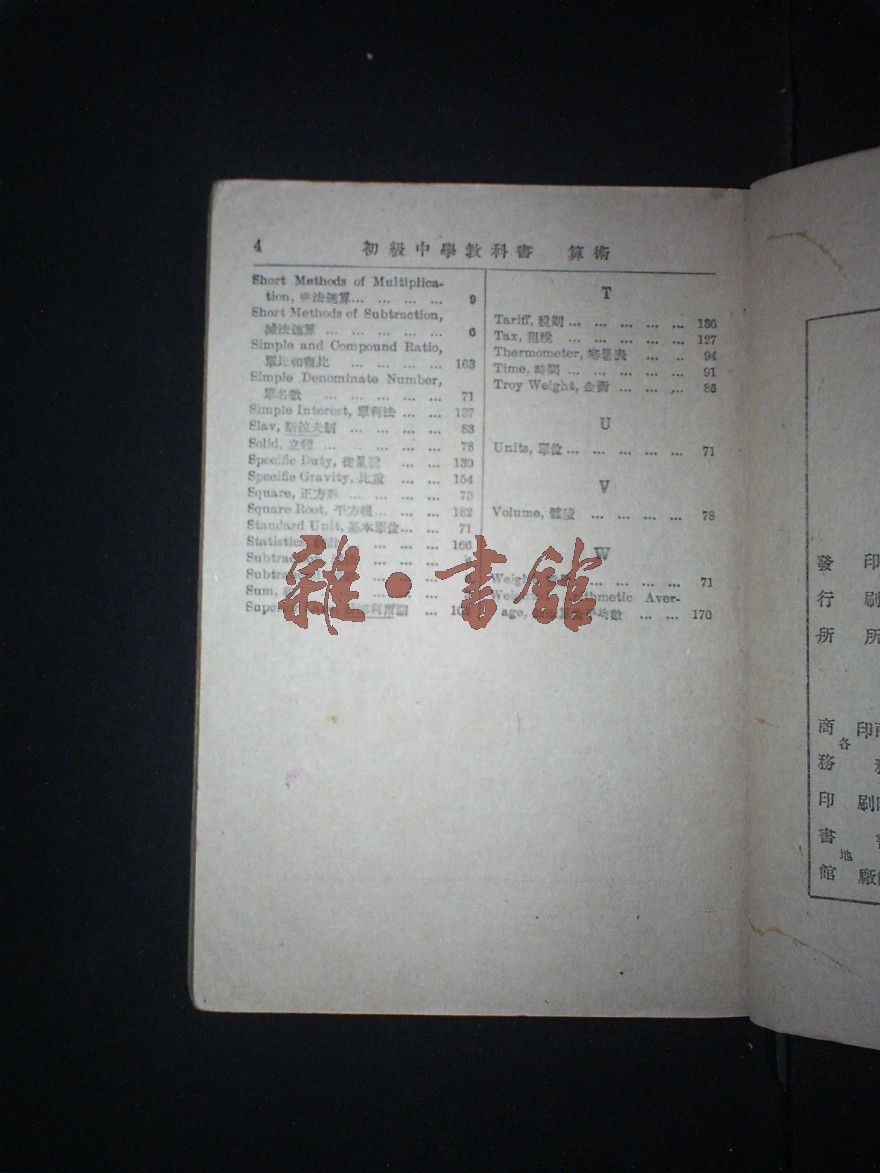 4 初級中學教科書 算術
Short Methods of Multiplica-
tion, 乘法速算... ... ... ... 9
Short Methods of Subtraction,
減法速算 ... ... ... ... ... 6
Simple and Compound Ratio,
單比和複比 ... ... ... ... 163
Simple Denominate Number,
單名數 ... ... ... ... ... 71
Simple Interest, 單利法 ... ... 137
Slav, 斯拉夫制 ... ... ... ... 83
Solid, 立體 ... ... ... ... ... 78
Specific Duty, 從量稅 ... ... 130
Specific Gravity, 比重 ... ... 154
Square, 正方形 ... ... ... ... 75
Square Root, 平方根... ... ... 182
Standard Unit, 基本單位... ... 71
Statistics, ... ... ... 166
Subtrac
Subtra
Sum,
Supe ...
T
Tariff, 稅則 ... ... ... ... ... 136
Tax, 租稅 ... ... ... ... ... 127
Thermometer, 寒暑表 ... ... 94
Time, 時間 ... ... ... ... ... 91
Troy Weight, 金衡 ... ... ... ... 86
U
Units, 單位... ... ... ... ... 71
V
Volume, 體積 ... ... ... ... 78
W
Weigh ... ... ... ... 71
Weigh thmetic Aver-
age, 平均數 ... ... 170
雜·書館
發行所
印刷所
商務印書館
各地
印刷廠